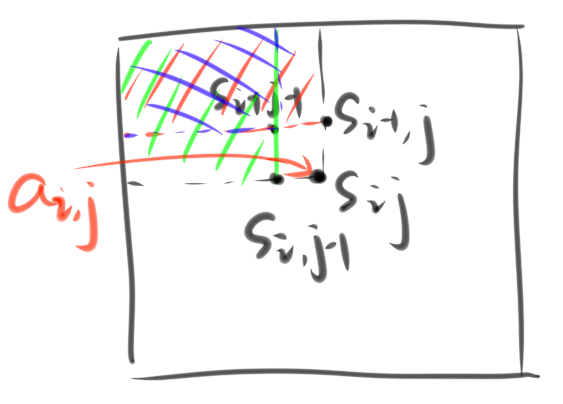 Si-1,j-1
Si-1,j
ai,j
Si,j
Si,j-1